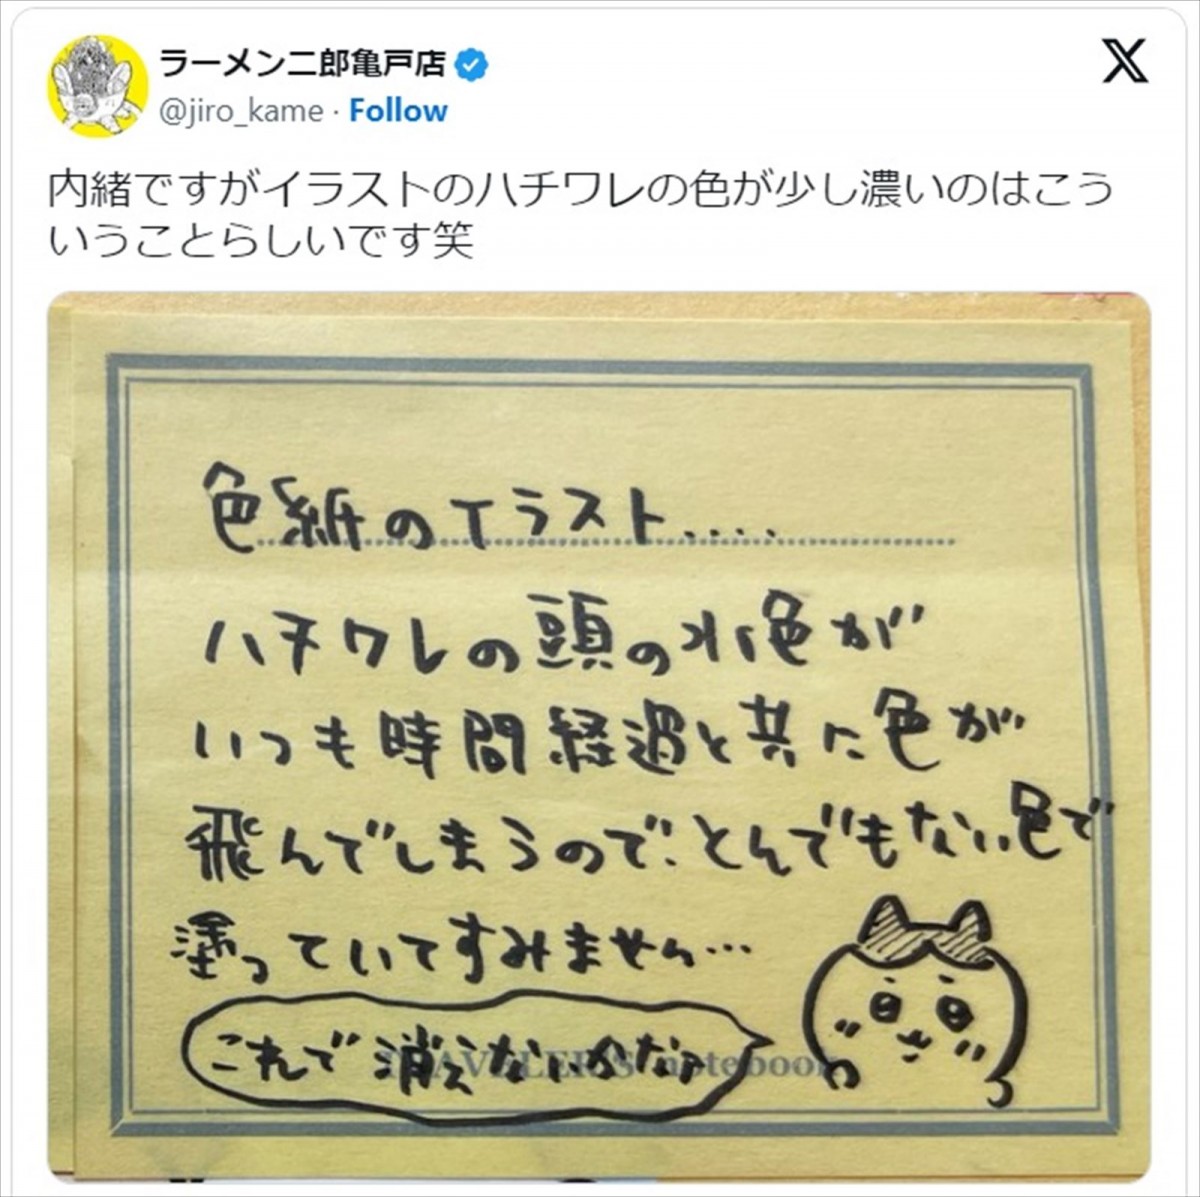 ラーメン二郎亀戸店
@jiro_kame · Follow
内緒ですがイラストのハチワレの色が少し濃いのはこう
いうことらしいです笑
色紙のイラスト....
ハチワレの頭の水色が
いつも時間経過と共に色が
飛んでしまうので、とんでもない色で
塗っていてすみません…
これで消えないかなァ
TRAVELER'S notebook